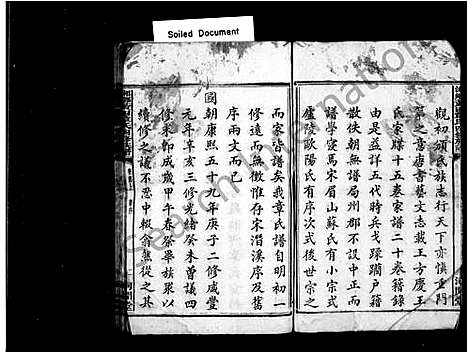 Soiled Document
觀初頒氏族志行天下亦慎重門
第之意唐書藝文志載王方慶王
氏家牒十五卷家譜二十卷籍錄
由是益詳五代時兵戈蹂躪戶籍
散佚朝無譜局州郡不設中正而
譜學寖焉宋眉山蘇氏有小宗式
廬陵歐陽氏有序次式後世宗之
而家皆譜矣我章氏譜自明初一
修遠而無徵惟存宋淄溪序及舊
序兩文而已
國朝康熙五十九年庚子二修咸豐
元年辛亥三修光緒癸未曾議四
修未即成歲甲午春祭畢族眾以
續修之議不忍中輟僉慫從之其